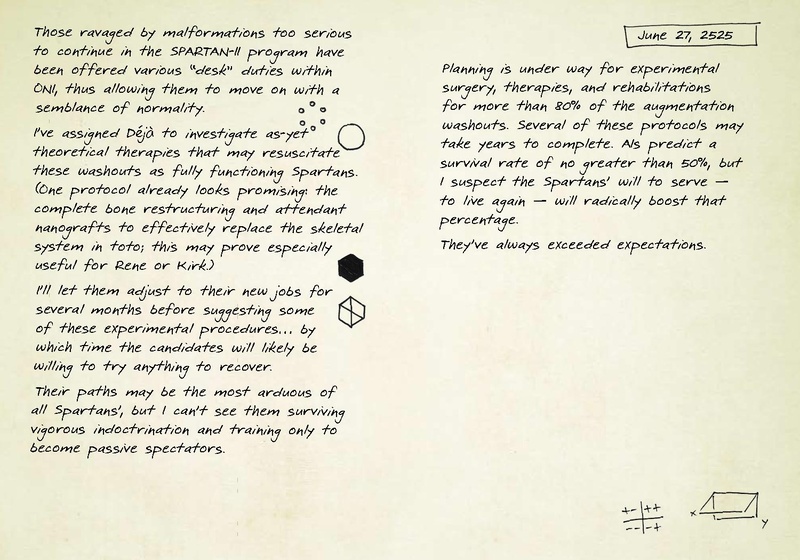 Those ravaged by malformations too serious
to continue in the SPARTAN-II program have
been offered various "desk" duties within
ONI, thus allowing them to move on with a
semblance of normality.
I've assigned Déjà to investigate as-yet
theoretical therapies that may resuscitate
these washouts as fully functioning Spartans.
(One protocol already looks promising: the
complete bone restructuring and attendant
nanografts to effectively replace the skeletal
system in toto; this may prove especially
useful for Rene or Kirk.)
I'll let them adjust to their new jobs for
several months before suggesting some
of these experimental procedures... by
which time the candidates will likely be
willing to try anything to recover.
Their paths may be the most arduous of
all Spartans', but I can't see them surviving
vigorous indoctrination and training only to
become passive spectators.
June 27, 2525
Planning is under way for experimental
surgery, therapies, and rehabilitations
for more than 80% of the augmentation
washouts. Several of these protocols may
take years to complete. AIs predict a
survival rate of no greater than 50%, but
I suspect the Spartans' will to serve —
to live again — will radically boost that
percentage.
They've always exceeded expectations.
-+ ++
-- -+
x
y